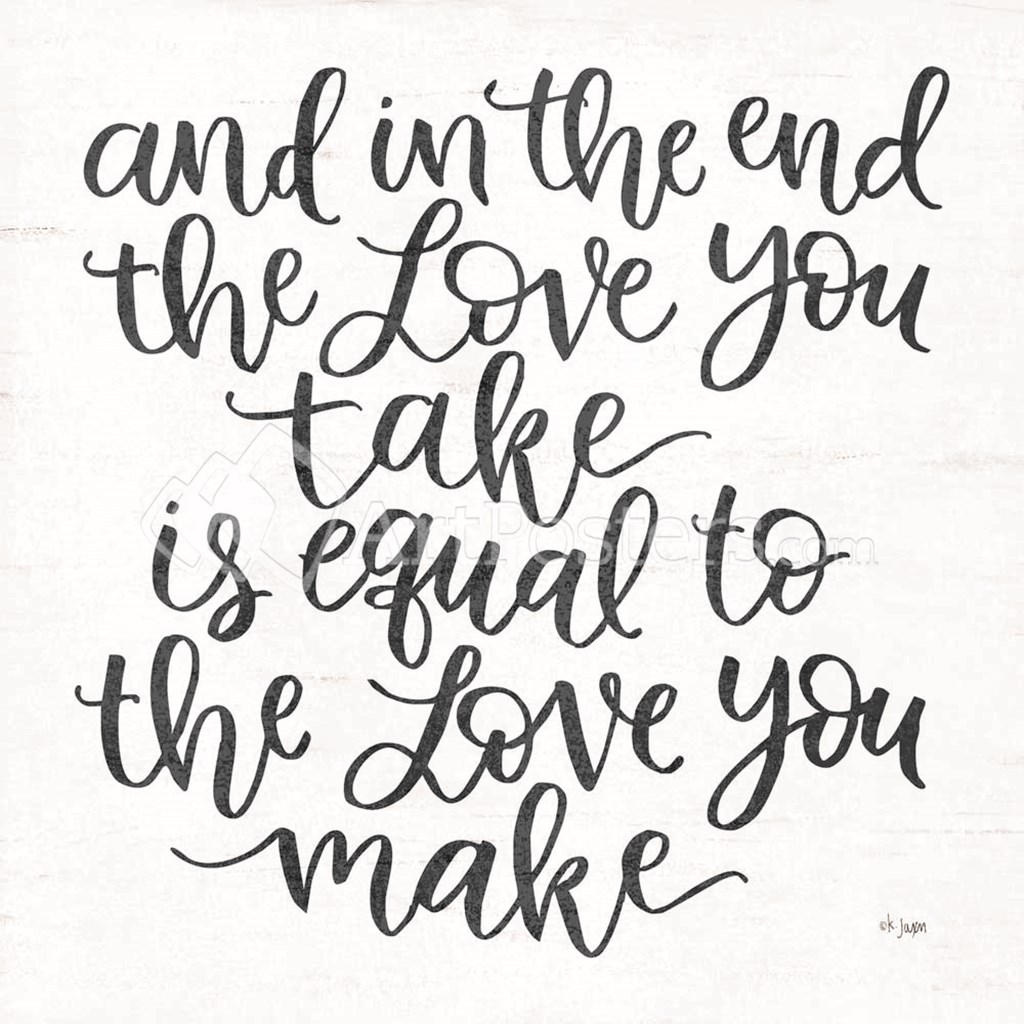 and in the end
the Love you
take
is equal to
the Love you
make
ArtPosters.com
©K. Jaxn